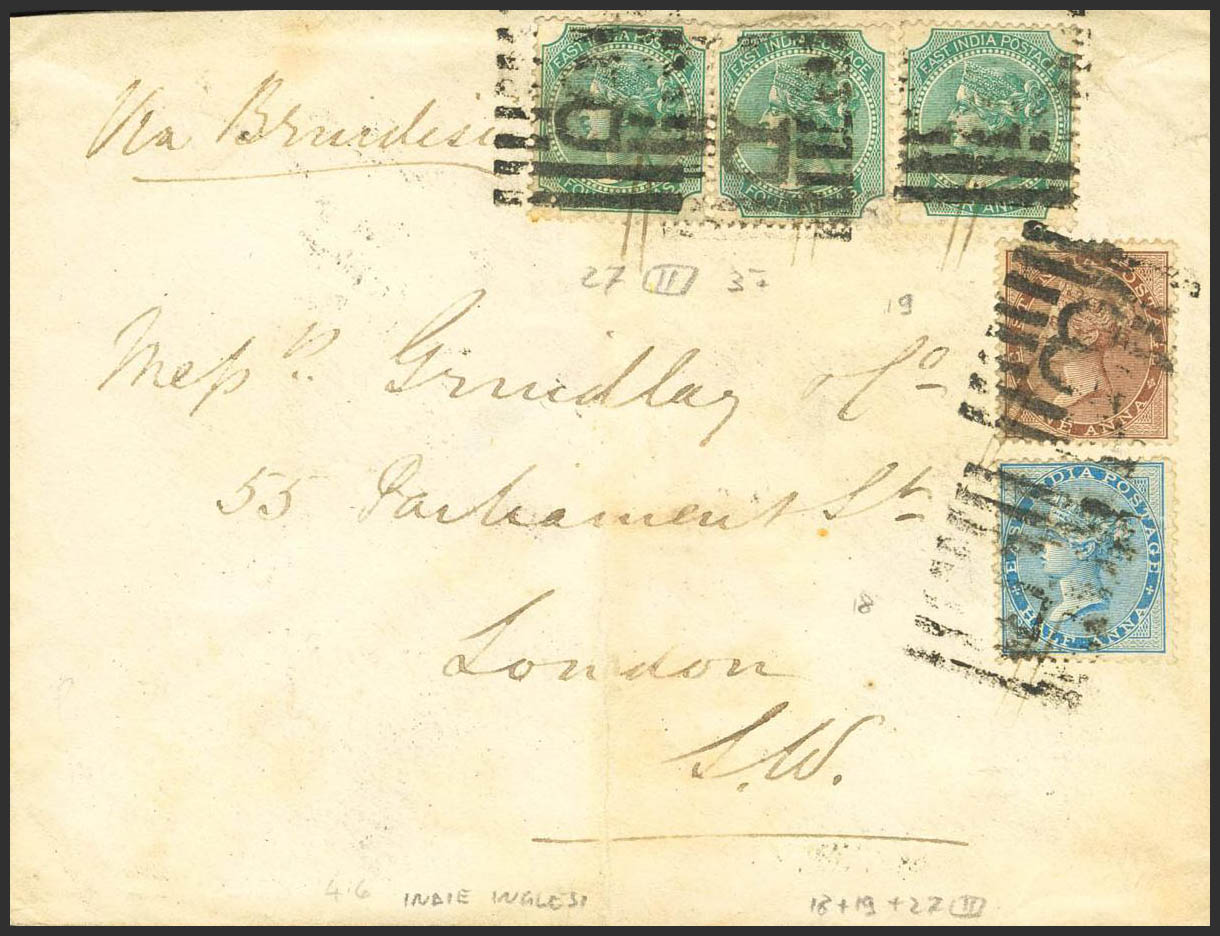 EAST INDIA POSTAGE
FOUR ANNAS
EAST INDIA POSTAGE
FOUR ANNAS
EAST INDIA POSTAGE
FOUR ANNAS
Via Brindisi
27 II
19
ONE ANNA
Messrs Grindlay & Co
55 Parliament St
EAST INDIA POSTAGE
HALF ANNA
18
London
S.W.
INDIE INGLESI
18+19+27 II